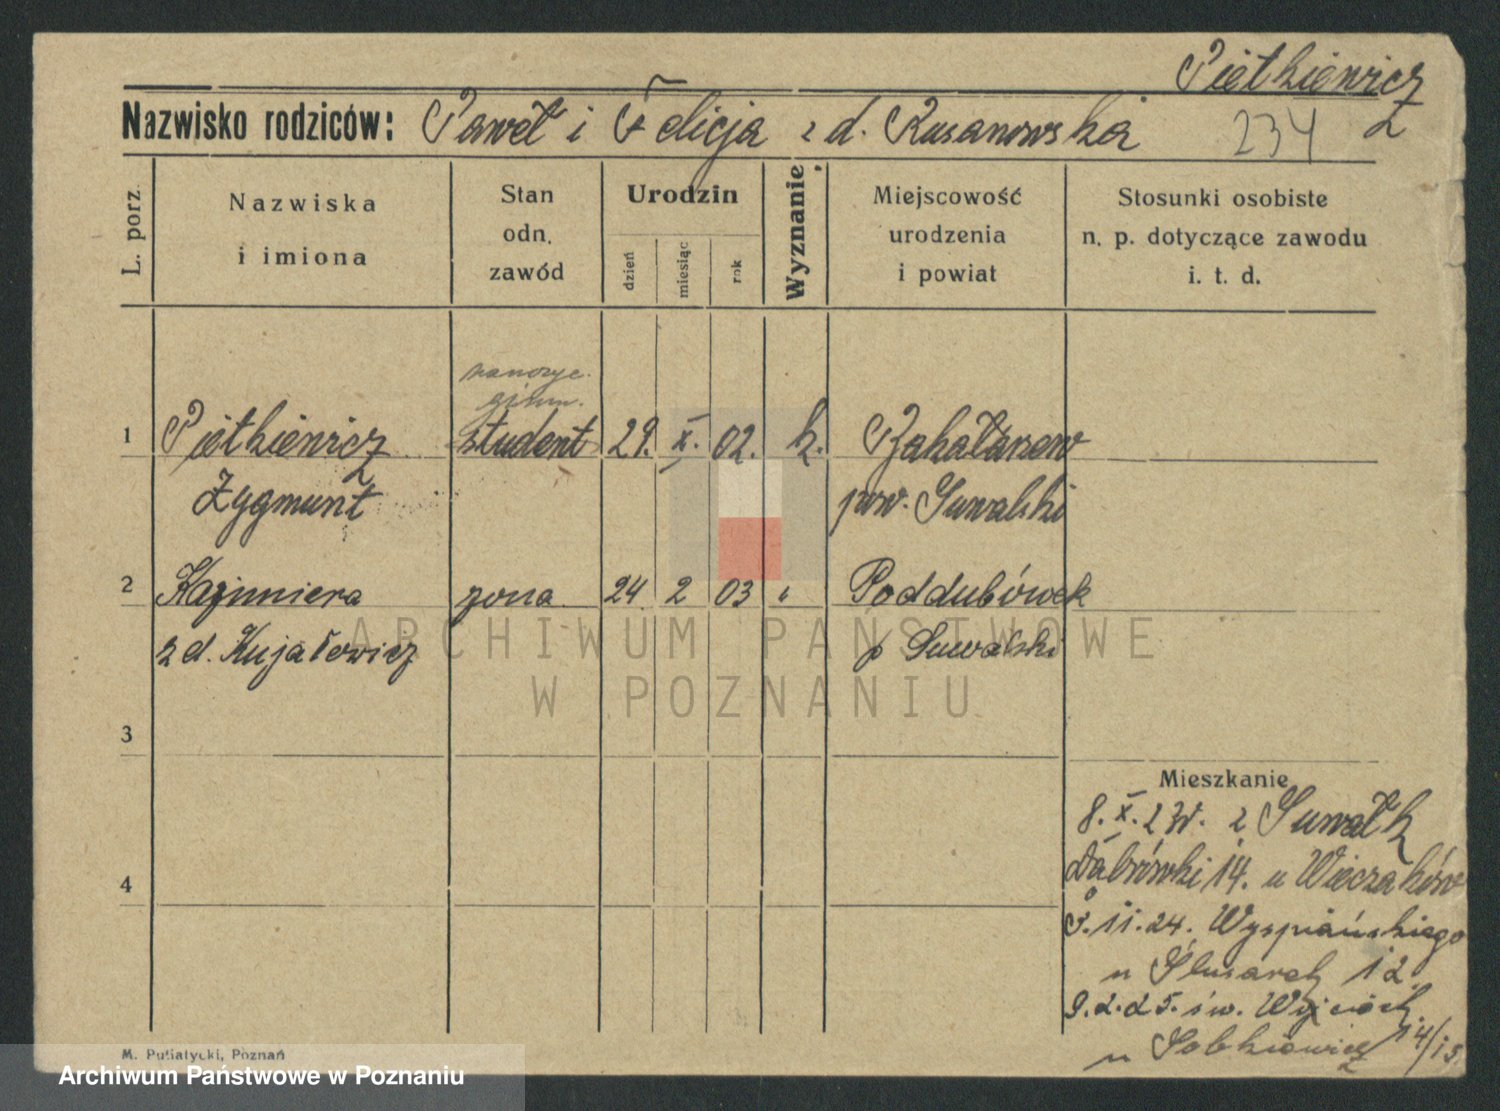 Pietkiewicz
Nazwisko rodziców: Paweł i Felicja z d. Rusanowska 234
L. porz.
Nazwiska
i imiona
Stan
odn.
zawód
Urodzin
dzień
miesiąc
rok
Wyznanie
Miejscowość
urodzenia
i powiat
Stosunki osobiste
n. p. dotyczące zawodu
i. t. d.
nauczyc.
gimn.
1 Pietkiewicz student 29. X. 02. k. Bakałarzew
Zygmunt pow. Suwalski
2 Kazimiera żona 24 2 03 " Poddubówek
z d. Kujałowicz p Suwalski
ARCHIWUM PAŃSTWOWE
W POZNANIU
3
Mieszkanie
8. X. 23r. z Suwałk
4 Dąbrówki 14. u Wieczaków
11.24. Wyspiańskiego
u Ślusarek 12.
9.2.25. św. Wojciech
u Sobkiewicz 14/15
M. Putiatycki, Poznań
Archiwum Państwowe w Poznaniu